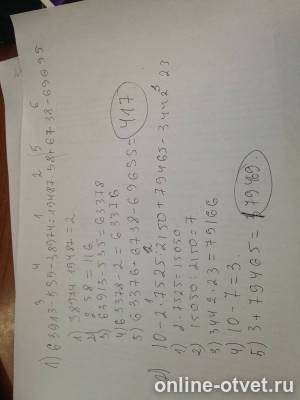 3 4 1 2 5 6
1) 63913-535-38974:19487·58+6738-69695
1) 38974:19487=2
2) 2·58=116
3) 63913-535=63378
4) 63378-2=63376
5) 63376+6738-69695=417
2) 10-2·7525:2150+79465-3442·23
1) 2·7525=15050
2) 15050:2150=7
3) 3442·23=79166
4) 10-7=3
5) 3+79465=79469.
online-otvet.ru